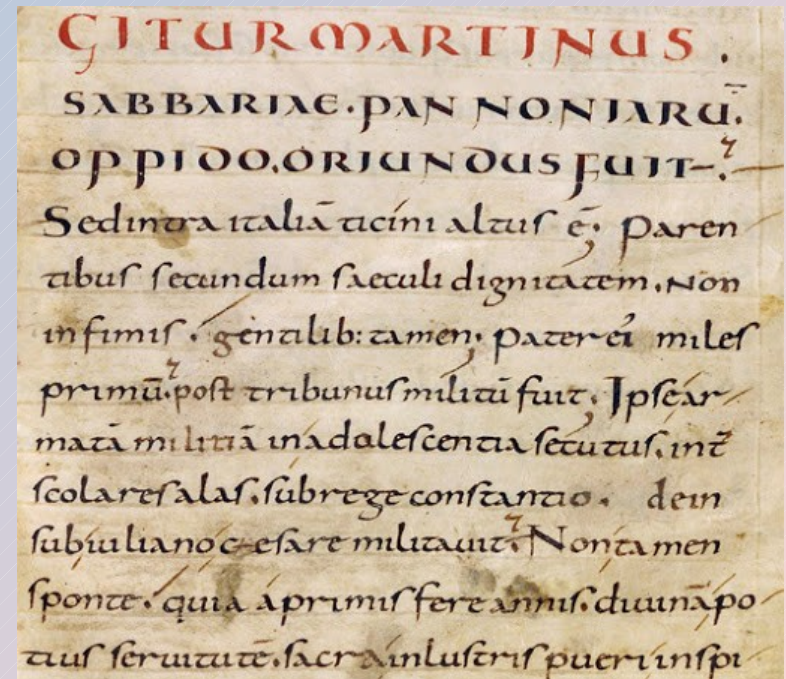 GITUR MARTINUS .
SABBARIAE. PANNONIARŪ.
OPPIDO. ORIUNDUS FUIT.
Sed intra italiā ticini altus ē; Paren
tibus secundum saeculi dignitatem. Non
infimis. gentilib: tamen; Pater ei miles
primū. post tribunus militū fuit; Ipse ar
matā militiā inadolescentia secutus. int̄
scolares alas. sub rege constantio. dein
sub iuliano cęsare militauit. Non tamen
sponte. quia aprimis fere annis. diuinā po
tius seruitutē. sacra inlustris pueri inspi